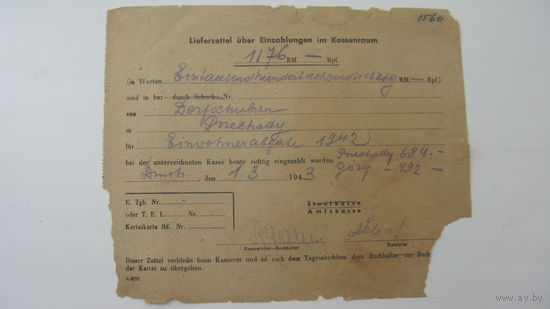 1560
Lieferzettel über Einzahlungen im Kassenraum
1176 RM. — Rpf.
(in Worten Eintausendhundertsechsundsiebzig RM — Rpf.)
sind in bar durch Scheck Nr.
von Dorfschulzen
in Przechody
für Einwohnerabgabe 1942
bei der unterzeichneten Kasse heute richtig eingezahlt worden. Przechody 684.-
, den 1.3 1943 Gózy - 492 -
E. Tgb. Nr.
oder T. E. L. Nr.
Karteikarte lfd. Nr.
Stadtkasse
Amtskasse
Kassenleiter—Buchhalter
Kassierer
Dieser Zettel verbleibt beim Kassierer und ist nach dem Tagesabschluss dem Buchhalter zur Buch
der Kartei zu übergeben.
ay.by